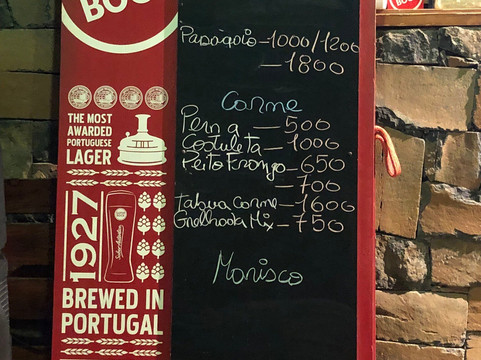 BOC
THE MOST
AWARDED
PORTUGUESE
LAGER
1927
BREWED IN
PORTUGAL
Papagaio - 1000/1200
- 1800
Carne
Perna - 500
Costuleta - 1000
Peito Frango - 650
- 700
Tabua Carne - 1600
Grelhada Mix - 750
Marisco